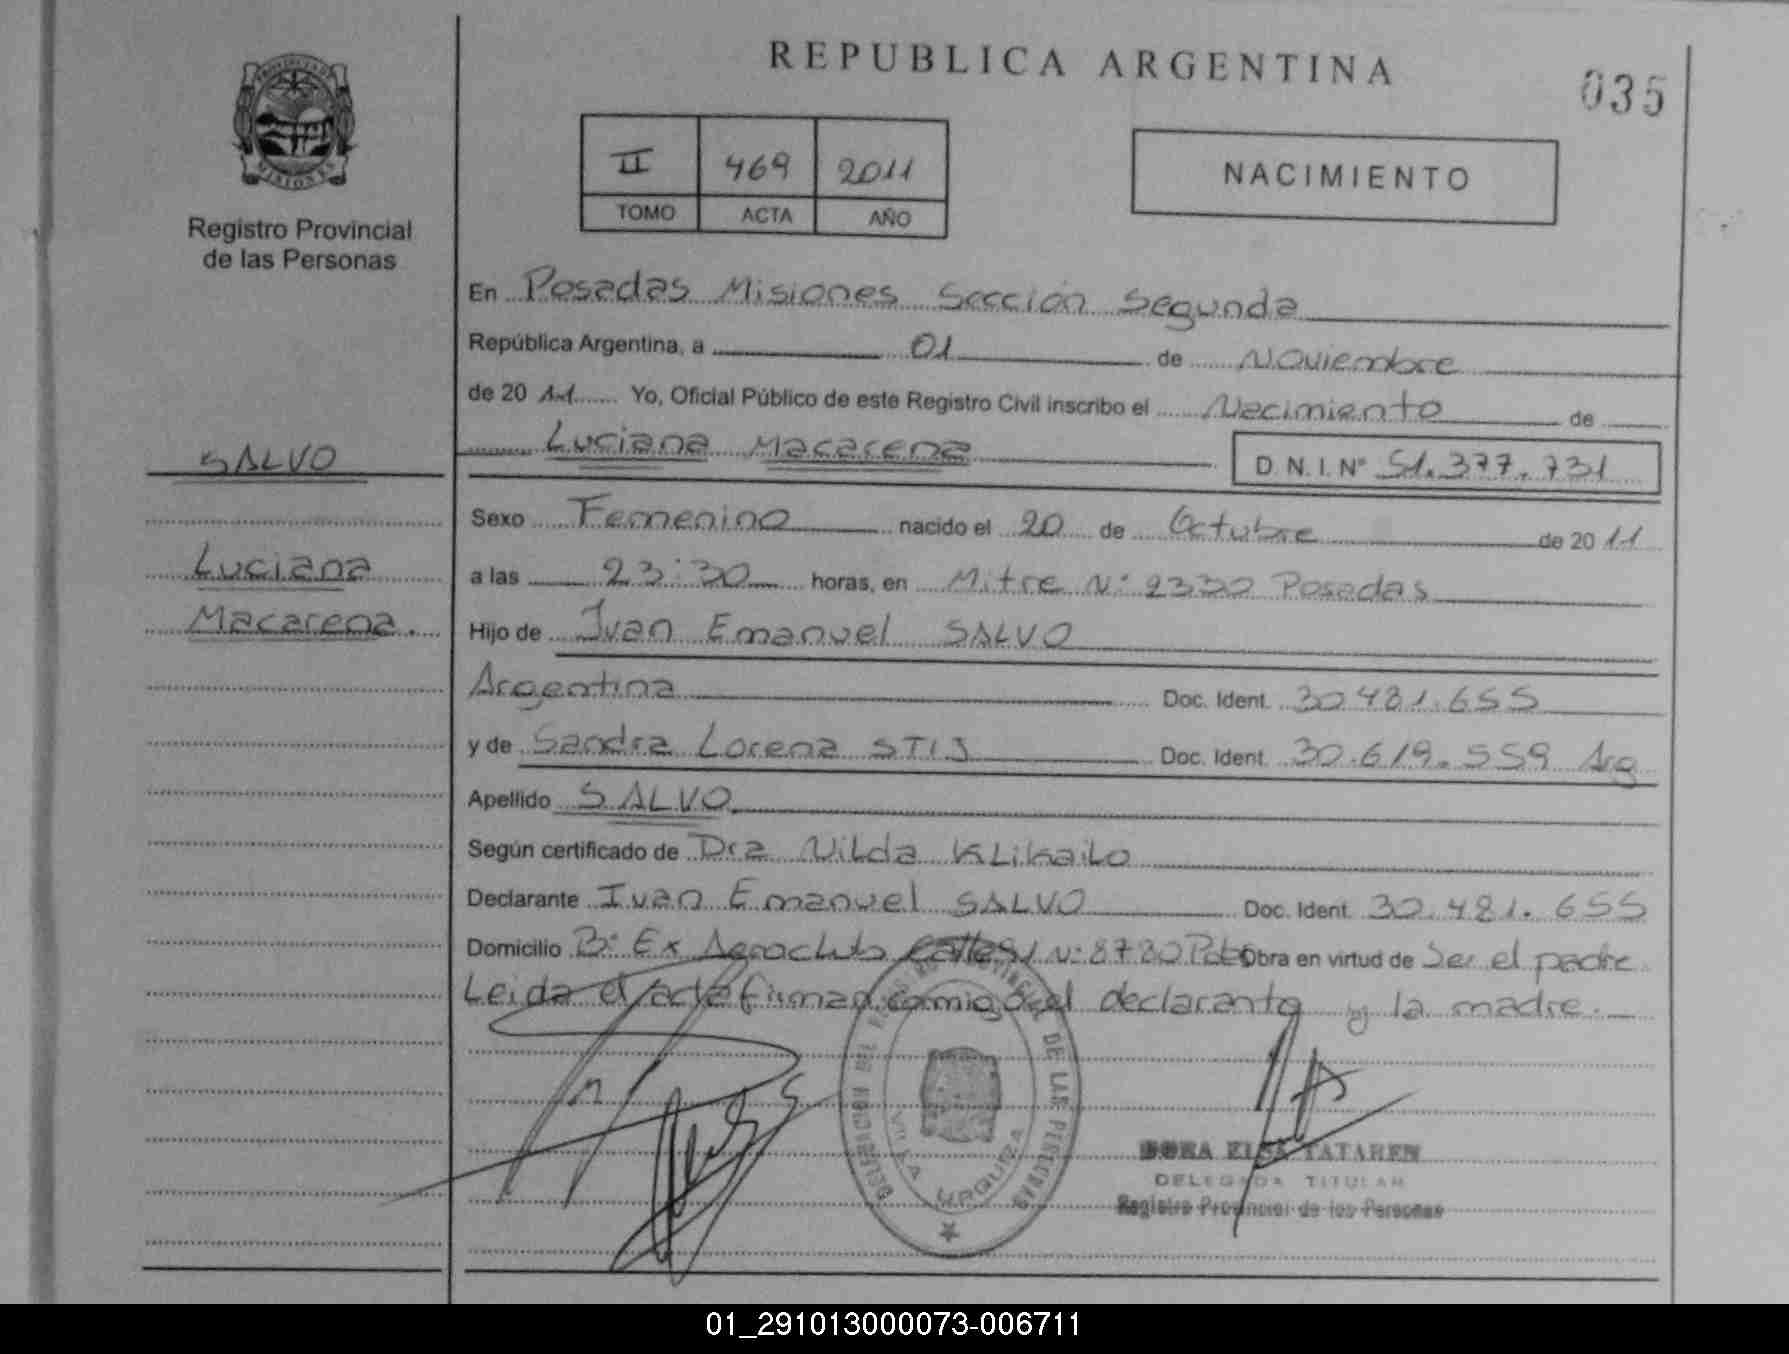 REPUBLICA ARGENTINA
035
PROVINCIA DE
MISIONES
Registro Provincial
de las Personas
II 469 2011
TOMO ACTA AÑO
NACIMIENTO
En Posadas Misiones Sección Segunda
República Argentina, a 01 de Noviembre
de 20 11 Yo, Oficial Público de este Registro Civil inscribo el Nacimiento de
Luciana Macarena D.N.I.Nº 51.377.731
SALVO
Luciana
Macarena.
Sexo Femenino nacido el 20 de Octubre de 20 11
a las 23:30 horas, en Mitre Nº 2330 Posadas
Hijo de Ivan Emanuel SALVO
Argentina Doc. Ident. 30.481.655
y de Sandra Lorena STIJ Doc. Ident. 30.619.559 Arg
Apellido SALVO
Según certificado de Dra Nilda Klikailo
Declarante Ivan Emanuel SALVO Doc. Ident. 30.481.655
Domicilio Bº Ex Aeroclub Nº 8780 Obra en virtud de Ser el padre
Leida el acta firman conmigo el declarante y la madre.
DELEGACION DEL REGISTRO PROVINCIAL DE LAS PERSONAS
VILLA URQUIZA
DORA ELSA TATAREN
DELEGADA TITULAR
Registro Provincial de las Personas
01_291013000073-006711